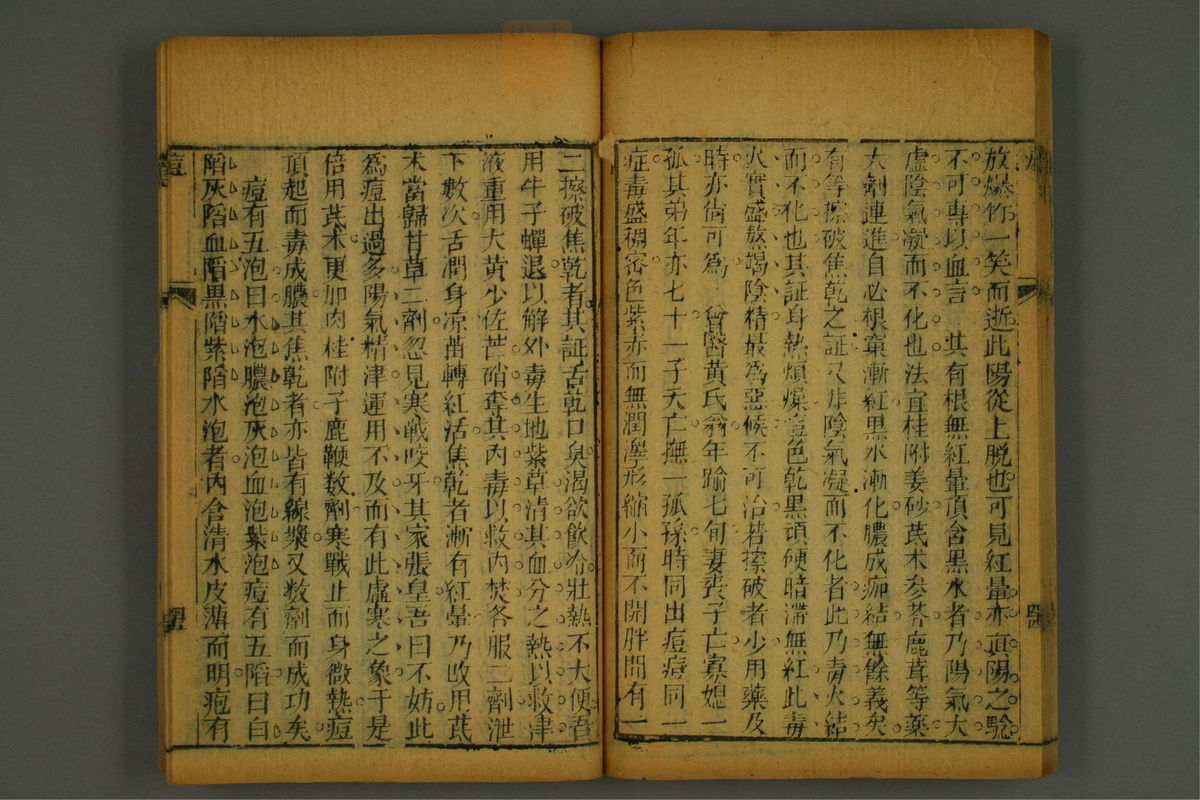 放爆作一笑而逝此陽從上脱也可見紅暈亦真陽之騐
不可專以血言　其有根無紅暈頂含黒水者乃陽氣大
虚陰氣凝而不化也法宜桂附姜砂茋术参苓鹿茸等藥
大劑連進自必根窠漸紅黒水漸化膿成痂結無餘義矣
有等擦破焦乾之証又非陰氣凝而不化者此乃青火結
而不化也其証身熱煩燥壹色乾黒頑硬暗滯無紅此毒
火實盛熬竭陰精最為惡候不可治若擦破者少用藥及
時亦尚可為　曾醫黄氏翁年踰七旬妻喪子亡寡媳一
孤其弟年亦七十一子夭亡撫一孤孫時同出痘痘同一
症毒盛稠密色紫赤而無潤澤形縮小而不開胖間有一
二擦破焦乾者其証舌乾口臭渴欲飲冷壯熱不大便吾
用牛子蟬退以解外毒生地紫草清其血分之熱以救津
液重用大黄少佐芒硝奪其内毒以救内焚各服二劑泄
下數次舌潤身凉苗轉紅活焦乾者漸有紅暈乃改用茋
术當歸甘草二劑忽見寒戰咬牙其家張皇吾曰不妨此
為痘出過多陽氣精津運用不及而有此虚寒之象于是
倍用茋术更加肉桂附子鹿鞭数劑寒戰止而身微熱痘
頂起而毒成膿其焦乾者亦皆有線漿又数劑而成功矣
痘有五泡曰水泡膿泡灰泡血泡紫泡痘有五陷曰白
陷灰陷血陷黒陷紫陷水泡者内含清水皮薄而明疱有
痘